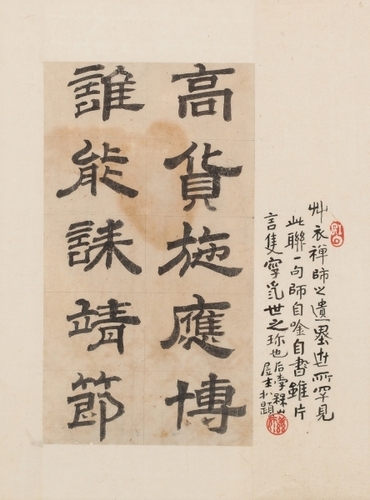 高貨施應博
誰能誄靖節
艸衣禪師之遺墨世所罕見
此聯一句師自唫自書雖片
言隻字世之珎也后學
居士題